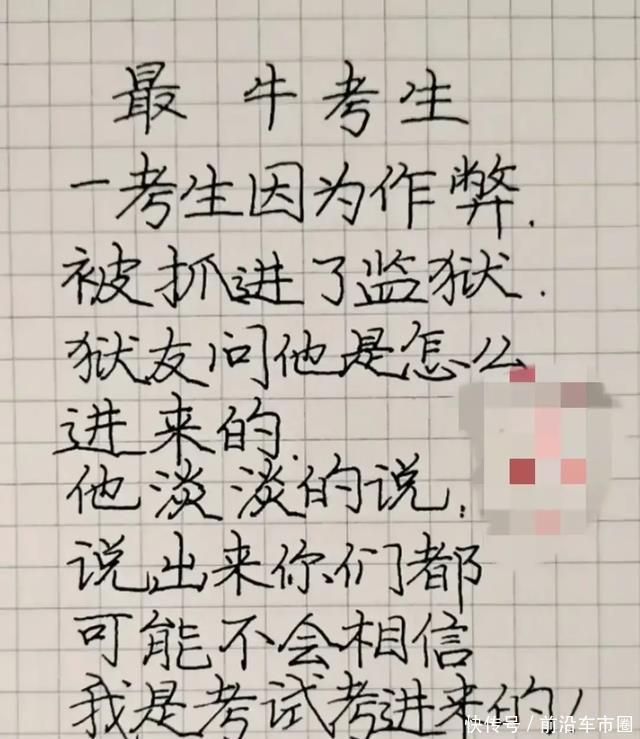 最牛考生
一考生因为作弊.
被抓进了监狱.
狱友问他是怎么
进来的.
他淡淡的说,
说出来你们都
可能不会相信
我是考试考进来的!
快传号/前沿车市圈